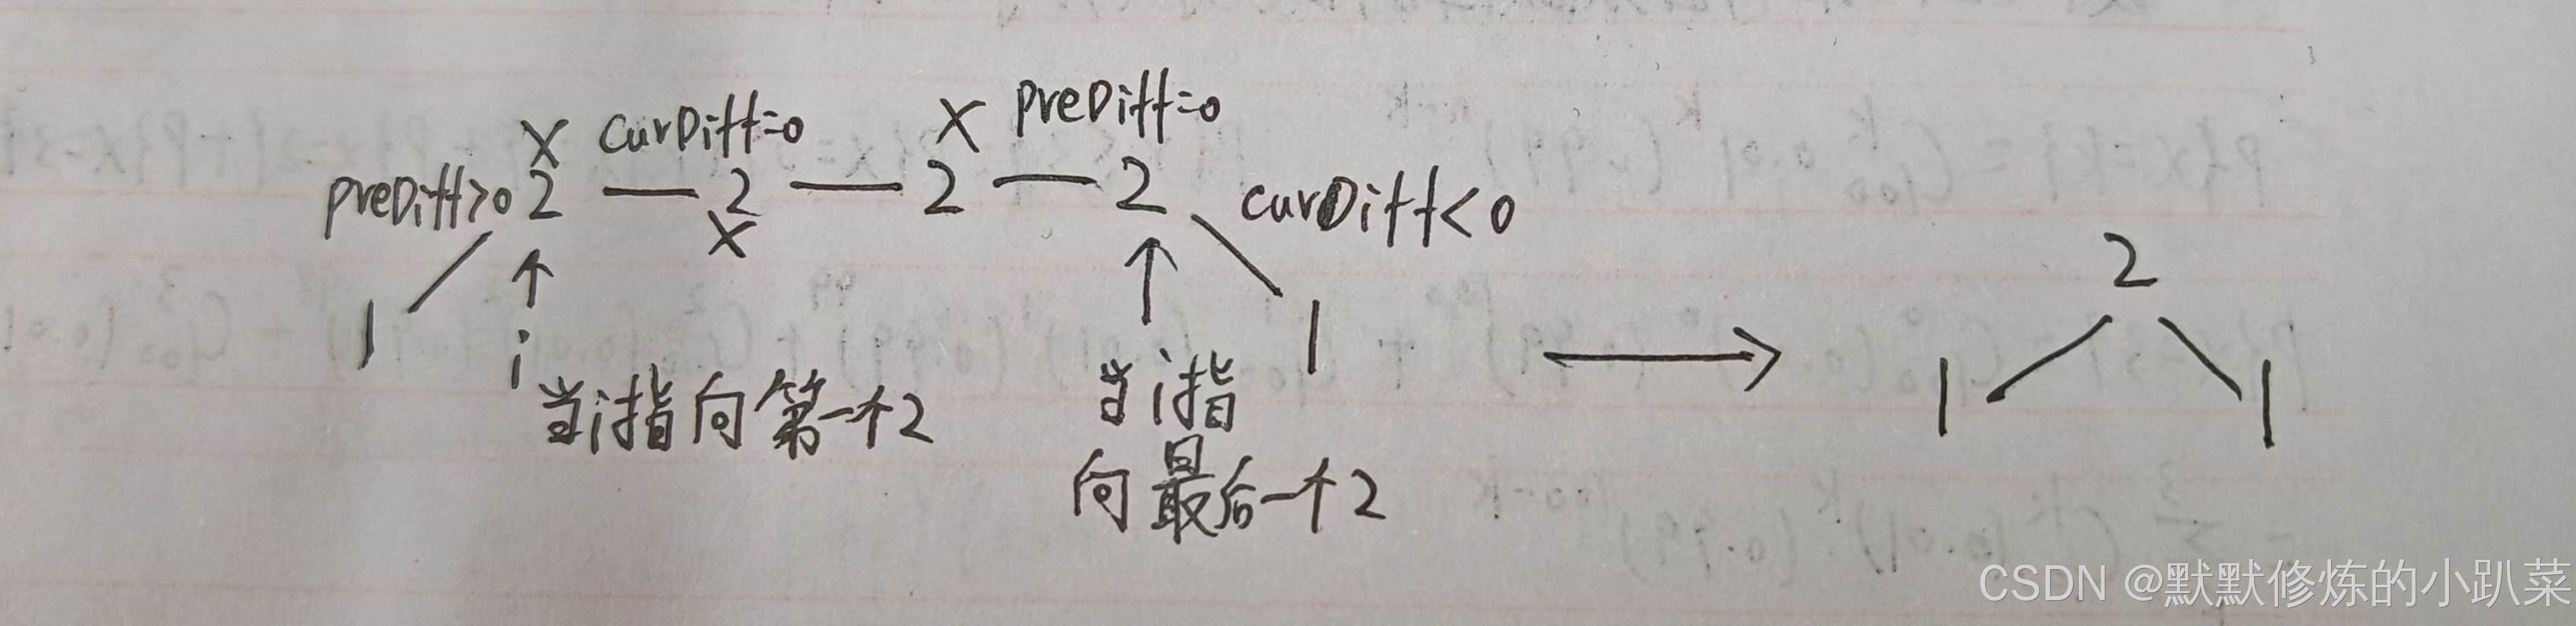 X curDiff=0 X preDiff=0
preDiff>0 2 — 2 — 2 — 2 curDiff<0
X
2
1 ↑ ↑ 1 → 1 1
i
当i指向第一个2
当i指
向最后一个2
CSDN @默默修炼的小趴菜